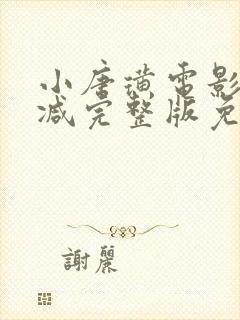 小唐璜电影
减完整版免
謝麗